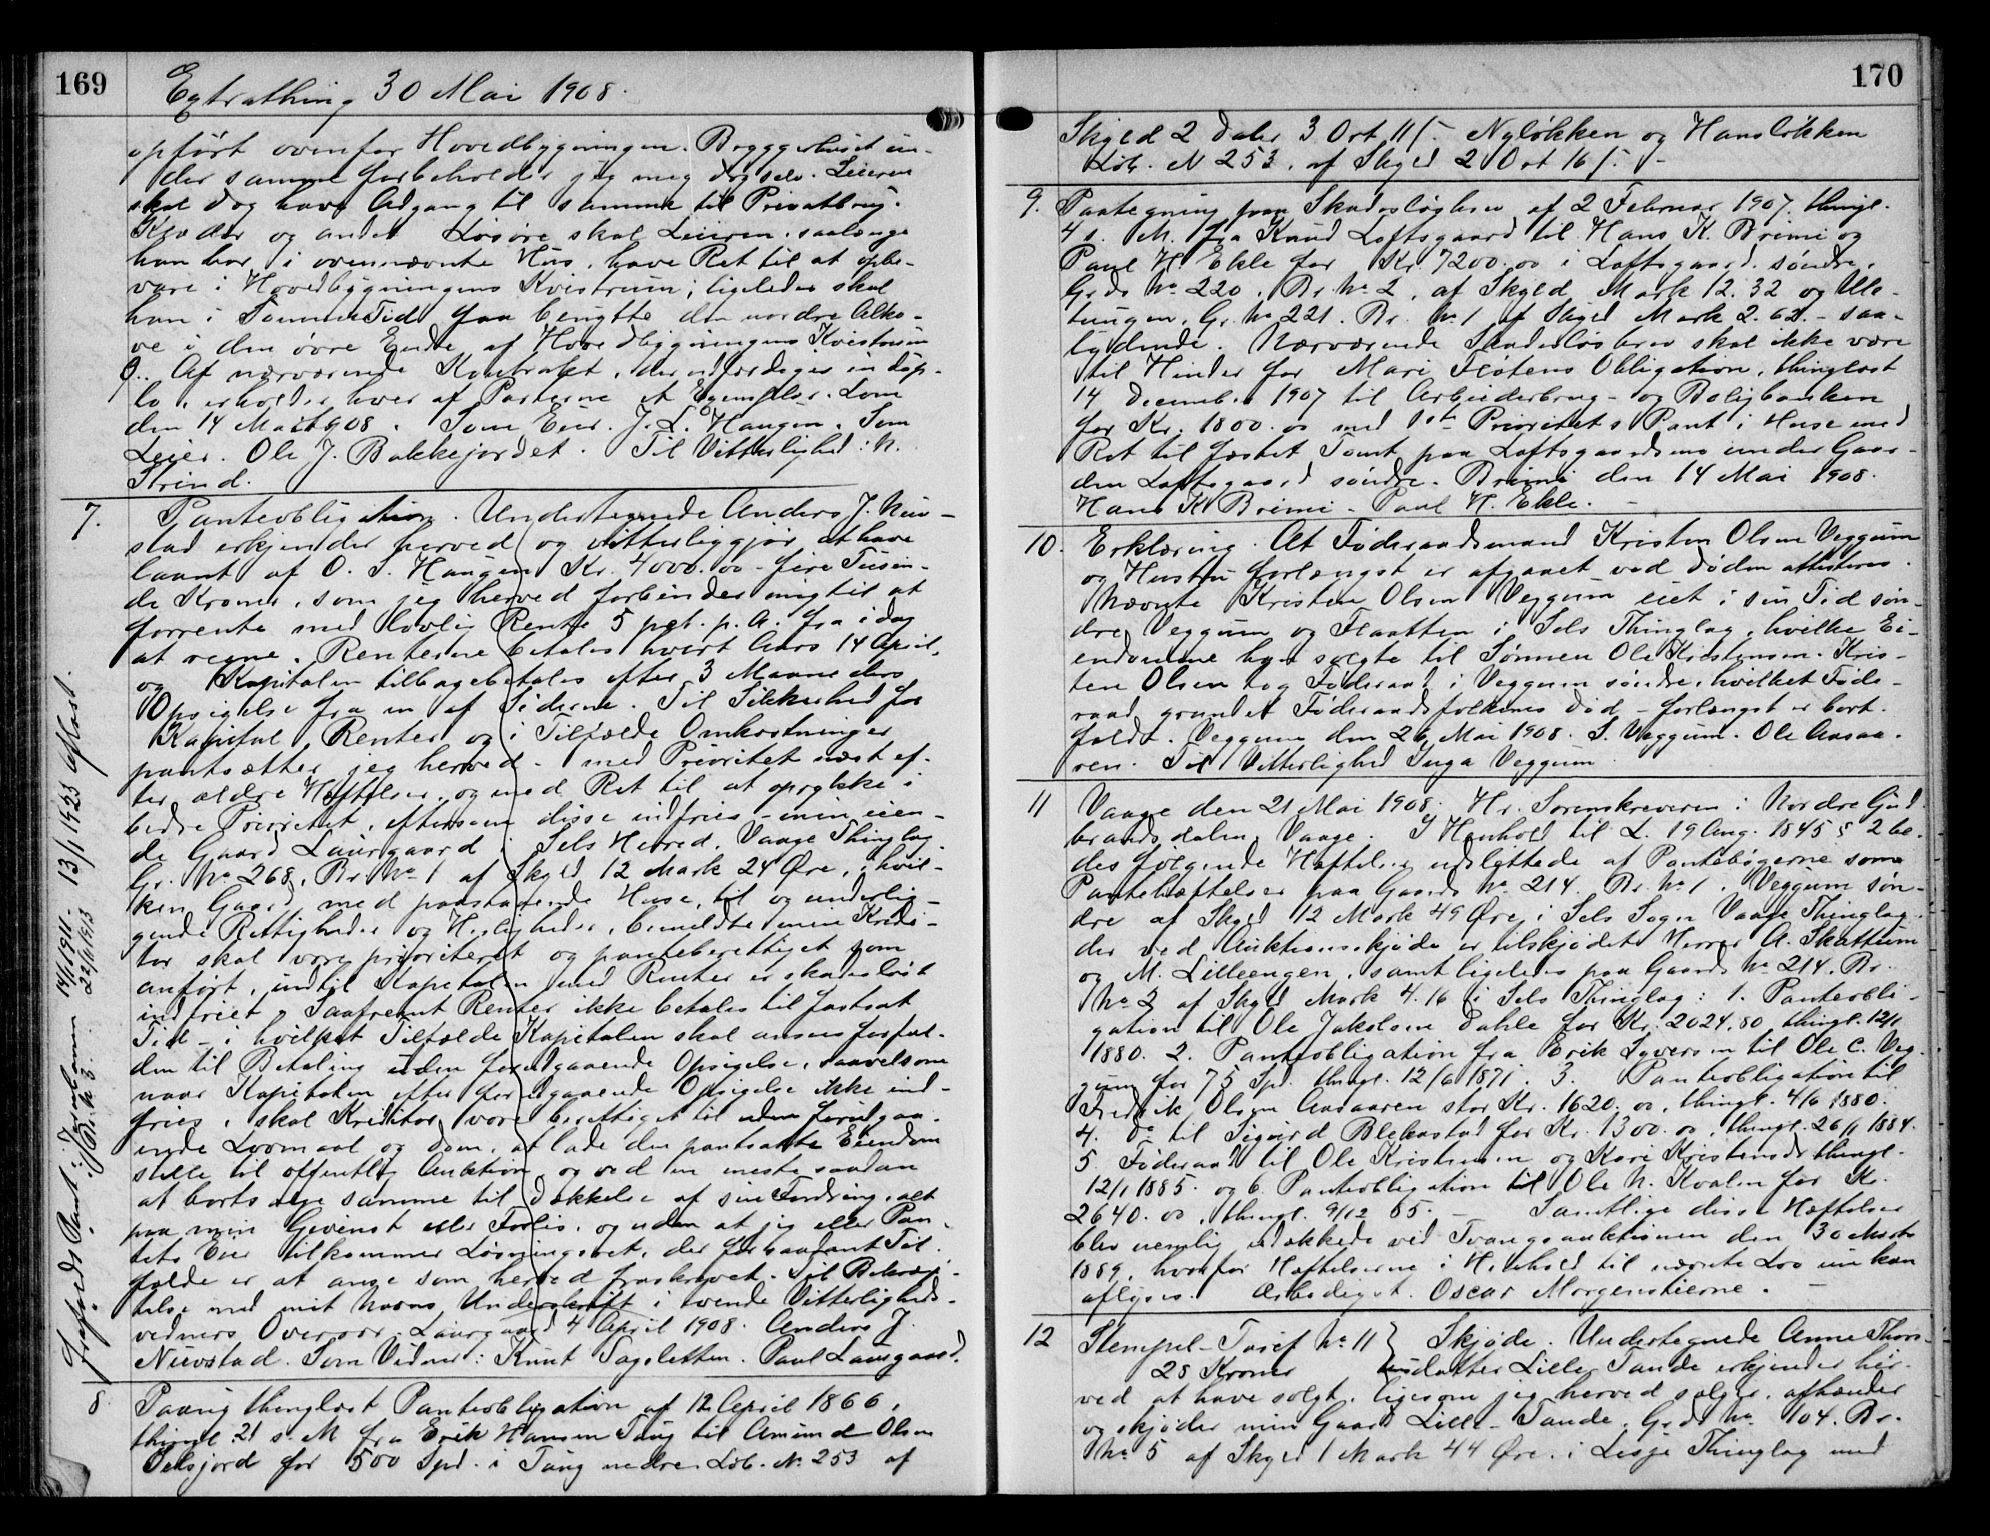 169
Extrathing 30 Mai 1908.
opført ovenfor Hovedbygningen. Bryggerhuset un-
der samme forbeholder jeg mig dog selv. Leieren
skal dog have Adgang til samme til Privatbrug.
Klæder og andet Løsøre skal Leieren, saalænge
han bor i ovennævnte Hus, have Ret til at opbe-
vare i Hovedbygningens Kvistrum; ligeledes skal
han i Sommertid faa benytte den nordre Alko-
ve i den øvre Ende af Hovedbygningens Kvistrum
9. Af nærværende Kontrakt, der udfærdiges in dup-
lo, erholder hver af Parterne et Exemplar. Lom
den 14 Mai 1908. Som Eier. J. L. Haugen. Som
Leier. Ole J. Bakkejordet. Til Vitterlighed: N.
Strind.
7. Panteobligation. Undertegnede Anders J. Niu-
stad erkjender herved og vitterliggjør at have
laant af O. S. Haugen Kr. 4000.00 - fire Tusin-
de Kroner, som jeg herved forbinder mig til at
forrente med lovlig Rente 5 pct. p. A. fra idag
at regne. Renterne betales hvert Aars 14 April,
og Kapitalen tilbagebetales efter 3 Maaneders
Opsigelse fra en af Siderne. Til Sikkerhed for
Kapital, Renter og i Tilfælde Omkostninger
pantsætter jeg herved - med Prioritet næst ef-
ter ældre Heftelser, og med Ret til at oprykke i
bedre Prioritet, eftersom disse indfries - min eien-
de Gaard Laurgaard i Sels Herred, Vaage Thinglag
Gr. No 268, Br. No 1 af Skyld 12 Mark 24 Øre, i hvil-
ken Gaard med paastaaende Huse, til og underlig-
gende Rettigheder og Herligheder, bemeldte min Kredi-
tor skal være prioriteret og panteberettiget som
anført, indtil Kapitalen med Renter er skadesløst
indfriet. Saafremt Renter ikke betales til fastsat
Tid - i hvilket Tilfælde Kapitalen skal ansees forfal-
den til Betaling uden foregaaende Opsigelse, saavelsom
naar Kapitalen efter foregaaende Opsigelse ikke ind-
fries, skal Kreditor være berettiget til uden forudgaa-
ende Lovmaal og Dom, at lade den pantsatte Eiendom
stille til offentlig Auktion og ved en meste saadan
at bortsælge samme til Dækkelse af sin Fordring, alt
paa min Gevinst eller Forlis, og uden at jeg eller Pan-
tets Eier tilkommer Løsningsret, der for saadant Til-
fælde er at anse som herved fraskrevet. Til Bekræf-
telse med mit Navns Underskrift i tvende Vitterligheds-
vidners Overvær. Laurgaard 4 April 1908. Anders J.
Niustad. Som Vidner: Knut Tagsletten. Paul Laurgaard.
Frafaldt Pant: Jorsalmen 14/1 1911. 13/1 1923 aflæst.
22/11 1913
8. Paavig thinglæst Panteobligation af 12 April 1866,
thingl. 21 s. M. fra Erik Hansen Tuig til Amund Olsen
Selsjord for 500 Spd. i Tuig nedre Löb. No. 253 af
170
Skyld 2 Daler 3 Ort 11 ß. Nyløkken og Hansløkken
Løb. N 253, af Skyld 2 Ort 16 ß. -
9. Paategning paa Skadesløsbrev af 2 Februar 1907, thingl.
4 s. M. fra Knud Loftsgaard til Hans K. Brimi og
Paul H. Ekle for Kr. 7200.00 i Loftsgaard søndre,
Grds No 220, Br. No 2, af Skyld Mark 12.32 og Ulo-
tungen, Gr. No 221, Br. No 1 af Skyld Mark 2.62. - saa-
lydende. Nærværende Skadesløsbrev skal ikke være
til Hinder for Mari Flötens Obligation, thinglæst
14 December 1907 til Arbeiderbrug- og Boligbanken
for Kr. 1800.00 med 1ste Prioritets Pant i Huse med
Ret til fæstet Tomt paa Loftsgaardsmo under Gaar-
den Loftsgaard søndre. Brimi den 14 Mai 1908.
Hans K. Brimi - Paul H. Ekle. -
10. Erklæring. At Føderaadsmand Kristen Olsen Veggum
og Hustru forlængst er afgaaet ved Døden attesteres.
Nævnte Kristen Olsen Veggum eiet i sin Tid søn-
dre Veggum og Flaatten i Sels Thinglag, hvilke Ei-
endomme han solgte til Sønnen Ole Kristensen. Kris-
ten Olsen tog Føderaad i Veggum søndre, hvilket Føde-
raad, grundet Føderaadsfolkenes Død - forlængst er bort-
faldt. Veggum den 26 Mai 1908. S. Veggum. Ole Aasaa-
ren. Til Vitterlighed Inga Veggum
11 Vaage den 21 Mai 1908. Hr. Sorenskriveren i Nordre Gud-
brandsdalen, Vaage. I Henhold til L. 19 Aug. 1845 § 2 be-
des følgende Heftelser udslettede af Pantebøgerne som
Pantehæftelser paa Gaards No. 214. Br. No 1, Veggum søn-
dre af Skyld 12 Mark 49 Øre, i Sels Sogn Vaage Thinglag
der ved Auktionsskjøde er tilskjødet Herrer A. Skattum
og M. Lilleengen, samt ligeledes paa Gaards No 214. Br.
No 2 af Skyld Mark 4.16 i Sels Thinglag: 1. Panteobli-
gation til Ole Jakobsen Dahle for Kr. 2024.80, thingl. 12/1
1880. 2. Panteobligation fra Erik Syversen til Ole C. Veg-
gum for 75 Spd. thingl. 12/6 1871. 3. Panteobligation til
Fredrik Olsen Aasaaren stor Kr. 1620.00, thingl. 4/6 1880.
4. Do til Sigurd Blekastad for Kr. 1300.00, thingl. 26/1 1884.
5. Føderaad til Ole Kristensen og Kari Kristensdr thingl.
12/1 1885. og 6. Panteobligation til Ole N. Kvalen for Kr.
2640.00, thingl. 9/12 85. - Samtlige disse Hæftelser
blev nemlig udækkede ved Tvangsauktionen den 30 Marts
1889, hvorfor Hæftelserne i Henhold til nævnte Lov nu kan
aflyses. Ærbødigst. Oscar Morgenstierne. -
12 Stempel-Tarif No 11 } Skjøde. Undertegnede Anne Thors-
28 Kroner datter Lille Tande erkjender her-
ved at have solgt, ligesom jeg herved sælger, afhænder
og skjøder min Gaard Lille-Tande, Grds No. 104. Br.
No 5 af Skyld 1 Mark 44 Øre. i Lesje Thinglag med